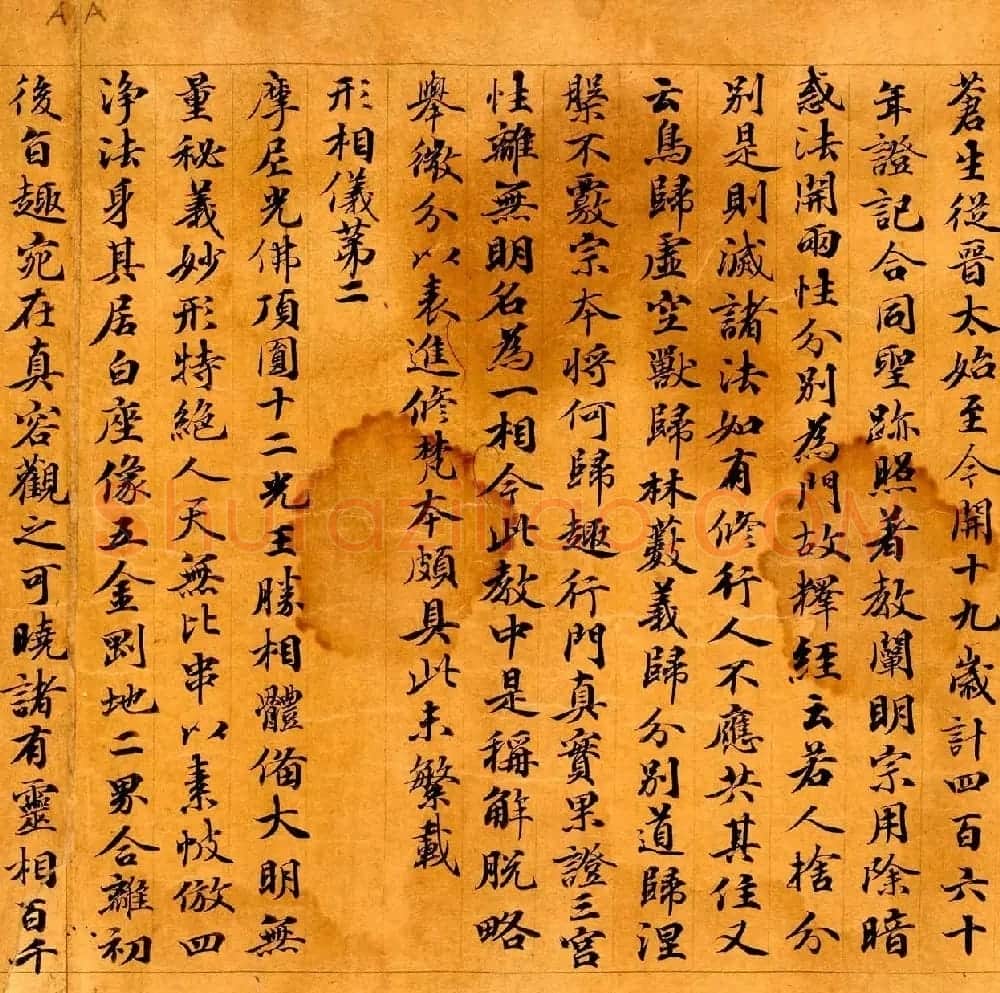 蒼生從晉太始至今開十九歲計四百六十
年證記合同聖跡照著教闡明宗用除暗
惑法開兩性分別為門故釋經云若人捨分
別是則滅諸法如有修行人不應共其住又
云鳥歸虛空獸歸林藪義歸分別道歸涅
槃不覈宗本將何歸趣行門真實果證三宮
性離無明名為一相今此教中是稱解脫略
舉微分以表進修梵本頗具此未繁載
形相儀第二
摩尼光佛頂圓十二光王勝相體備大明無
量秘義妙形特絕人天無比串以素帔倣四
淨法身其居白座像五金剛地二界合離初
後旨趣宛在真容觀之可曉諸有靈相百千
AA
shufaziliao.COM